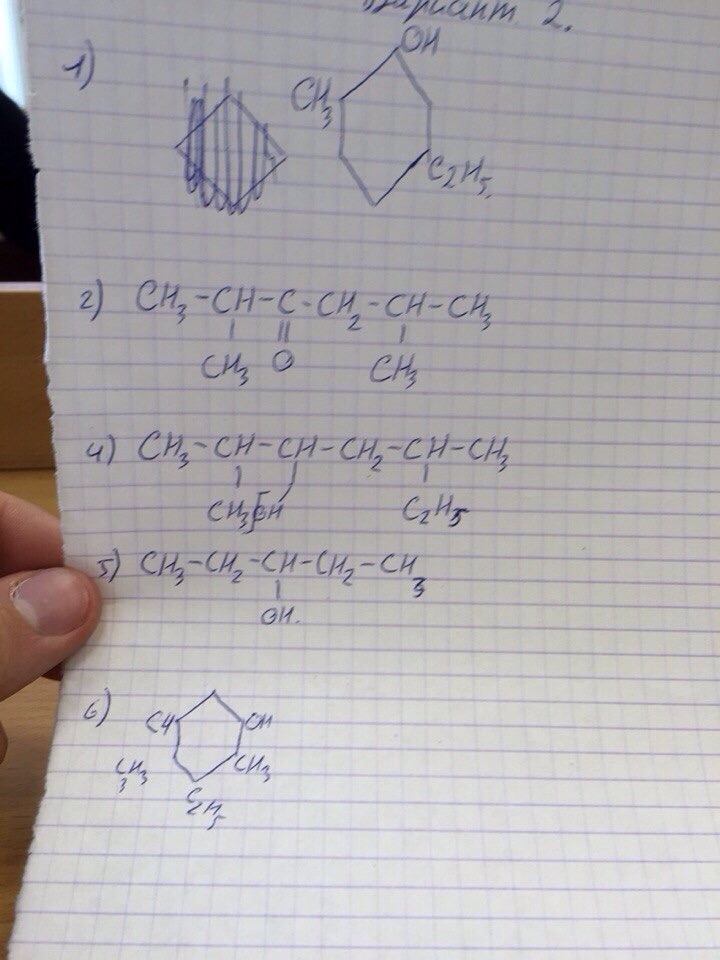 Вариант 2.
1)
OH
CH3
C2H5.
2) CH3-CH-C-CH2-CH-CH3
CH3 O CH3
4) CH3-CH-CH-CH2-CH-CH3
CH3 OH C2H5
5) CH3-CH2-CH-CH2-CH3
OH.
6)
OH
CH3
CH3
C2H5